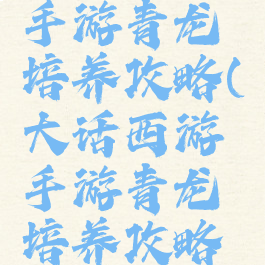 手游青龙
培养攻略(
大话西游
手游青龙
培养攻略